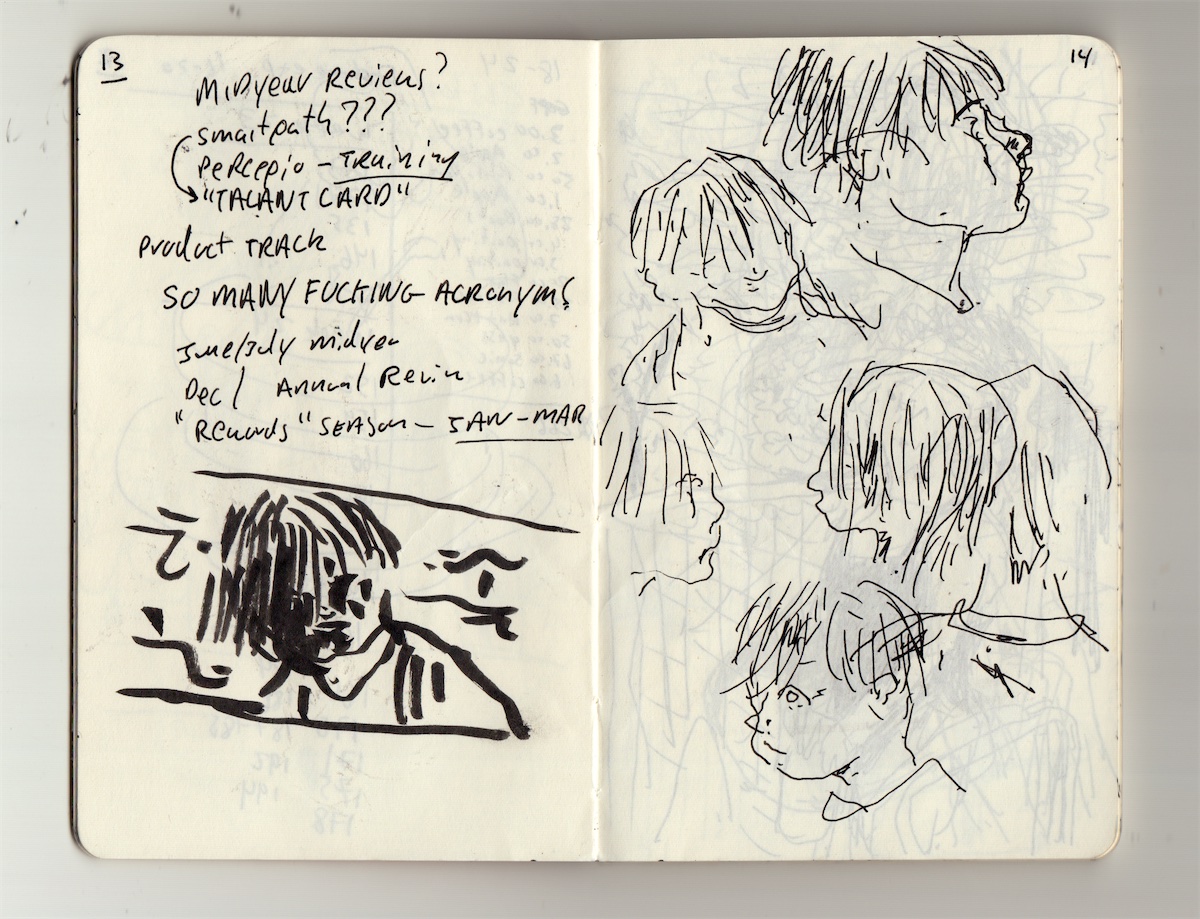 13
MIDyear Reviews?
smartpath???
Percepio - TRaining
"TALANT CARD"
Product TRACK
SO MANY FUCKING ACRonyms
June/July midyea
Dec / Annual Revie
"Rewards" SEASon - JAN-MAR
14